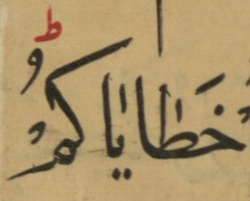 خَطَايَاكُمْ